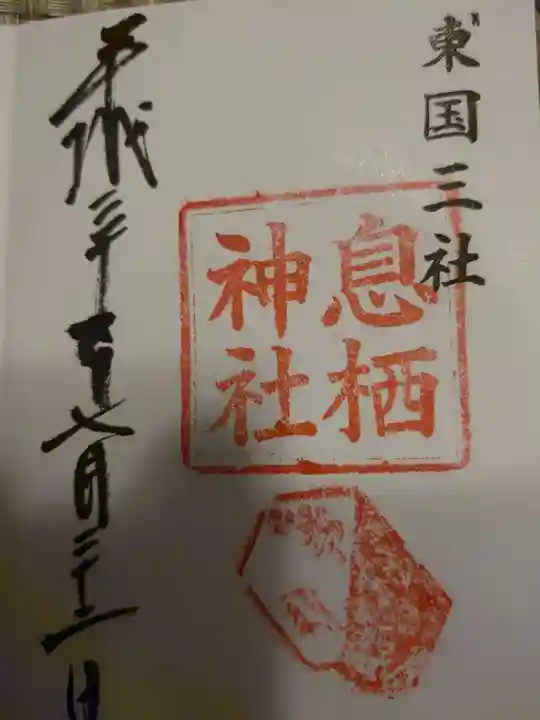 東国三社
息栖
神社
平成三十年七月二十一日